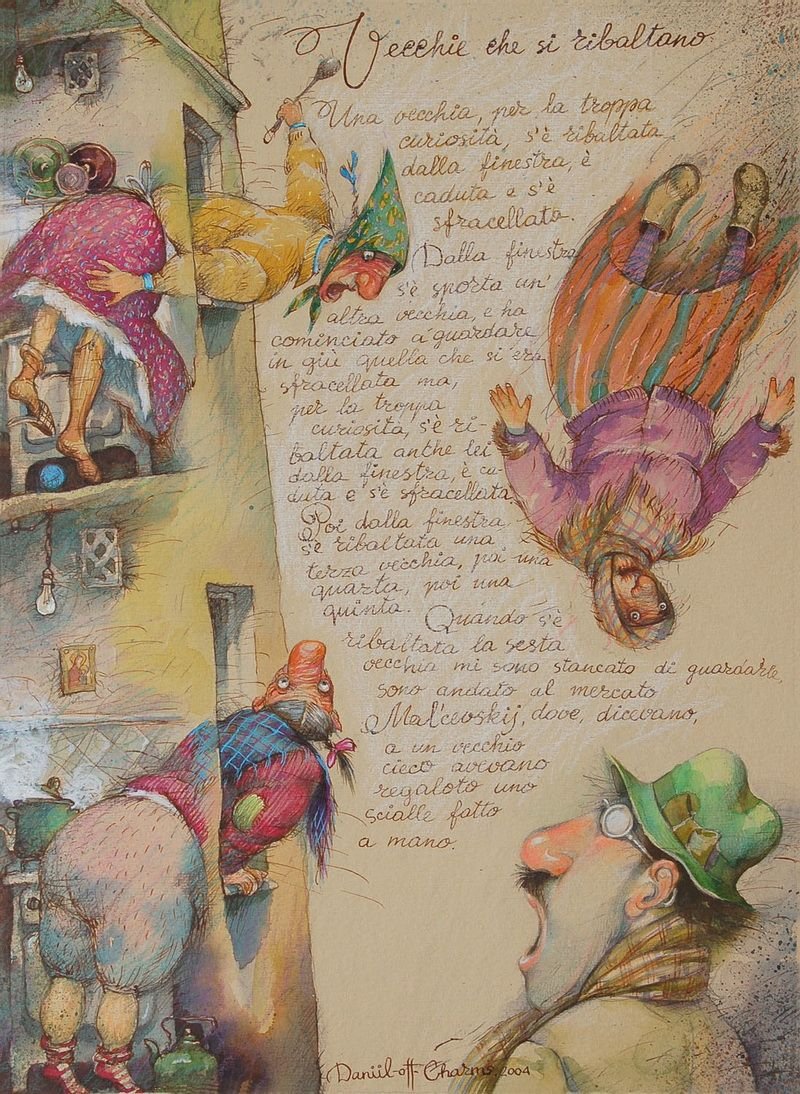 Vecchie che si ribaltano
Una vecchia, per la troppa
curiosità, s'è ribaltata
dalla finestra, è
caduta e s'è
sfracellata.
Dalla finestra
s'è sporta un'
altra vecchia, e ha
cominciato a guardare
in giù quella che si era
sfracellata ma,
per la troppa
curiosità, s'è ri-
baltata anche lei
dalla finestra, è ca-
duta e s'è sfracellata
Poi dalla finestra
s'è ribaltata una
terza vecchia, poi una
quarta, poi una
quinta. Quando s'è
ribaltata la sesta
vecchia mi sono stancato di guardarle,
sono andato al mercato
Mal'cevskij, dove, dicevano,
a un vecchio
cieco avevano
regaloto uno
scialle fatto
a mano.
Daniil-off-Charms. 2004